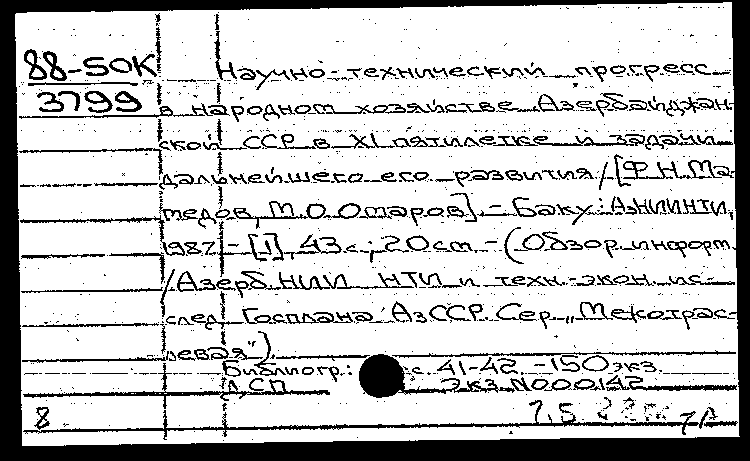 88-50К
3799
Научно-технический прогресс
в народном хозяйстве Азербайджан-
ской ССР в XI пятилетке и задачи
дальнейшего его развития / [Ф.Н.Ма-
медов, М.О.Омаров]. - Баку: АзНИИНТИ,
1987. - [1], 43 с.; 20 см. - (Обзор. информ.
/ Азерб. НИИ НТИ и техн.-экон. ис-
след. Госплана АзССР. Сер. „Межотрас-
левая").
Библиогр.: с. 41-42. - 150 экз.
ДСП Экз. N000142
8